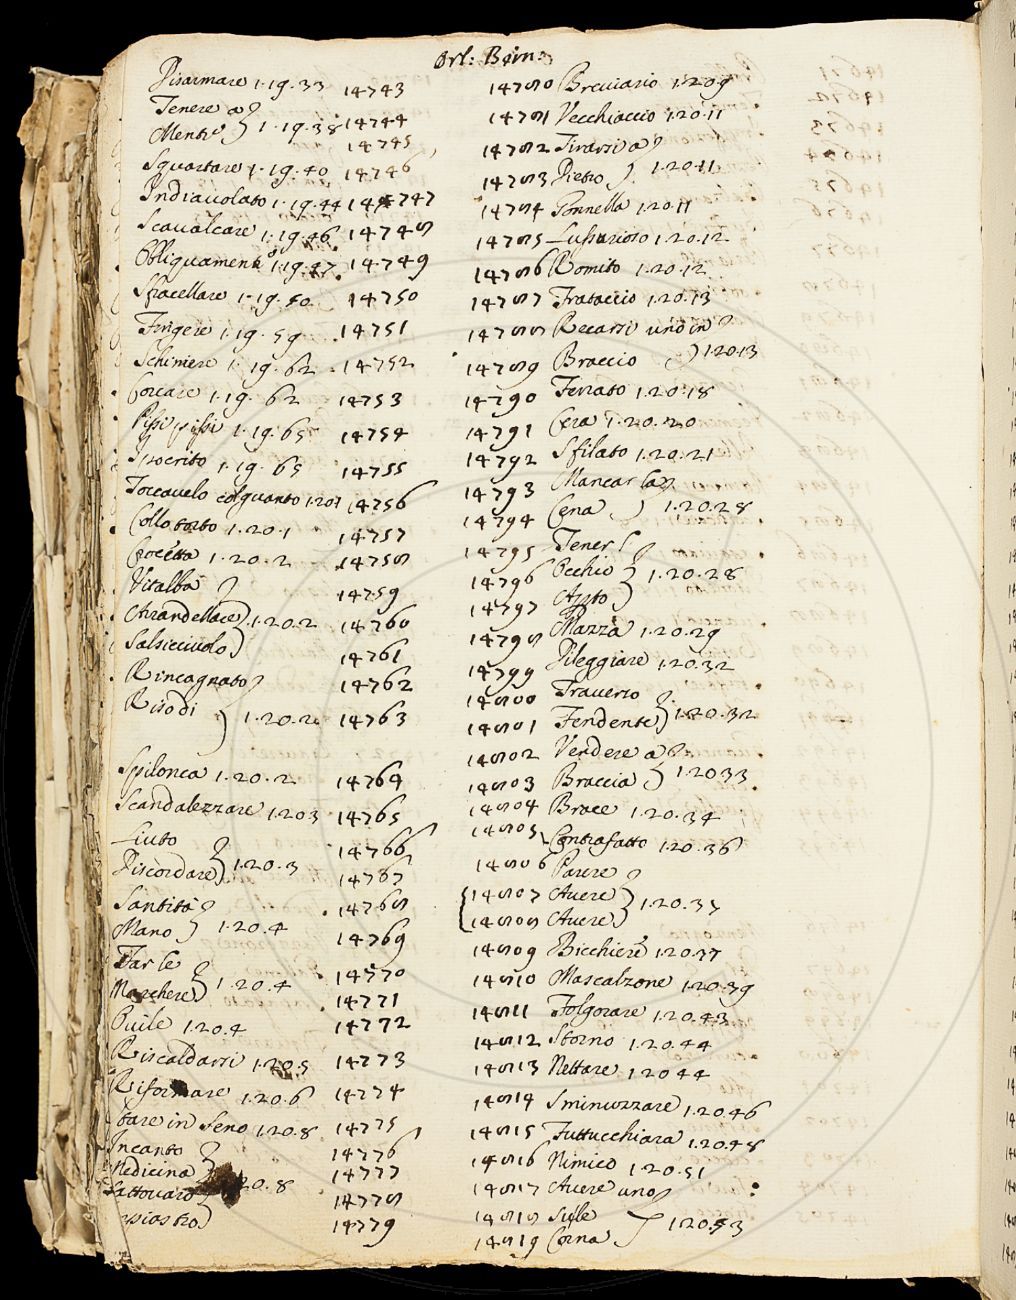 Orl: Boin:
Disarmare 1.19.33 14743
Tenere a
Mente } 1.19.38 14744
14745
Squartare 1.19.40 14746
Indiavolato 1.19.44 14747
Scavalcare 1.19.46 14748
Obliquamente 1.19.47 14749
Sfracellare 1.19.50 14750
Fingere 1.19.59 14751
Schiniere 1.19.62 14752
Corcare 1.19.62 14753
Pissi pissi 1.19.65 14754
Ipocrito 1.19.65 14755
Toccavelo colguanto 1.20.1 14756
Collo torto 1.20.1 14757
Crocetta 1.20.2 14758
Vitalba 14759
Mirandellace } 1.20.2 14760
Salsicciuolo 14761
Rincagnato 14762
Riso di } 1.20.2 14763
Spilonca 1.20.2 14764
Scandalezzare 1.20.3 14765
Liuto 14766
Discordare } 1.20.3 14767
Santità 14768
Mano } 1.20.4 14769
Far le 14770
Marchere } 1.20.4 14771
Ovile 1.20.4 14772
Riscaldarsi 1.20.5 14773
Riformare 1.20.6 14774
Stare in Seno 1.20.8 14775
Incanto 14776
Medicina 14777
Lattovaro } 1.20.8 14778
14779
14780 Breviario 1.20.9
14781 Vecchiaccio 1.20.11
14782 Tirarsi a
14783 Dietro } 1.20.11
14784 Gonnella 1.20.11
14785 Lussurioso 1.20.12
14786 Romito 1.20.12
14787 Frataccio 1.20.13
14788 Recarsi uno in
14789 Braccio } 1.20.13
14790 Ferrato 1.20.18
14791 Cera 1.20.20
14792 Sfilato 1.20.21
14793 Mancar la
14794 Cena } 1.20.28
14795 Tener l'
14796 Occhio } 1.20.28
14797
14798 Mazza 1.20.29
14799 Pileggiare 1.20.32
14800 Traverso
14801 Fendente } 1.20.32
14802 Vendere a
14803 Braccia } 1.20.33
14804 Brace 1.20.34
14805 Contrafatto 1.20.36
14806 Parere
14807 Avere } 1.20.37
14808 Avere
14809 Bicchiere 1.20.37
14810 Mascalzone 1.20.39
14811 Folgorare 1.20.43
14812 Storno 1.20.44
14813 Nettare 1.20.44
14814 Sminuzzare 1.20.46
14815 Tuttucchiara 1.20.48
14816 Nimico 1.20.51
14817 Avere uno
14818 Sulle } 1.20.53
14819 Corna